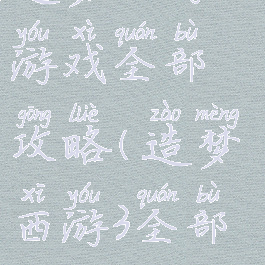 yóu xì quán bù
游戏全部
gōng lüè zào mèng
攻略(造梦
xī yóu quán bù
西游3全部